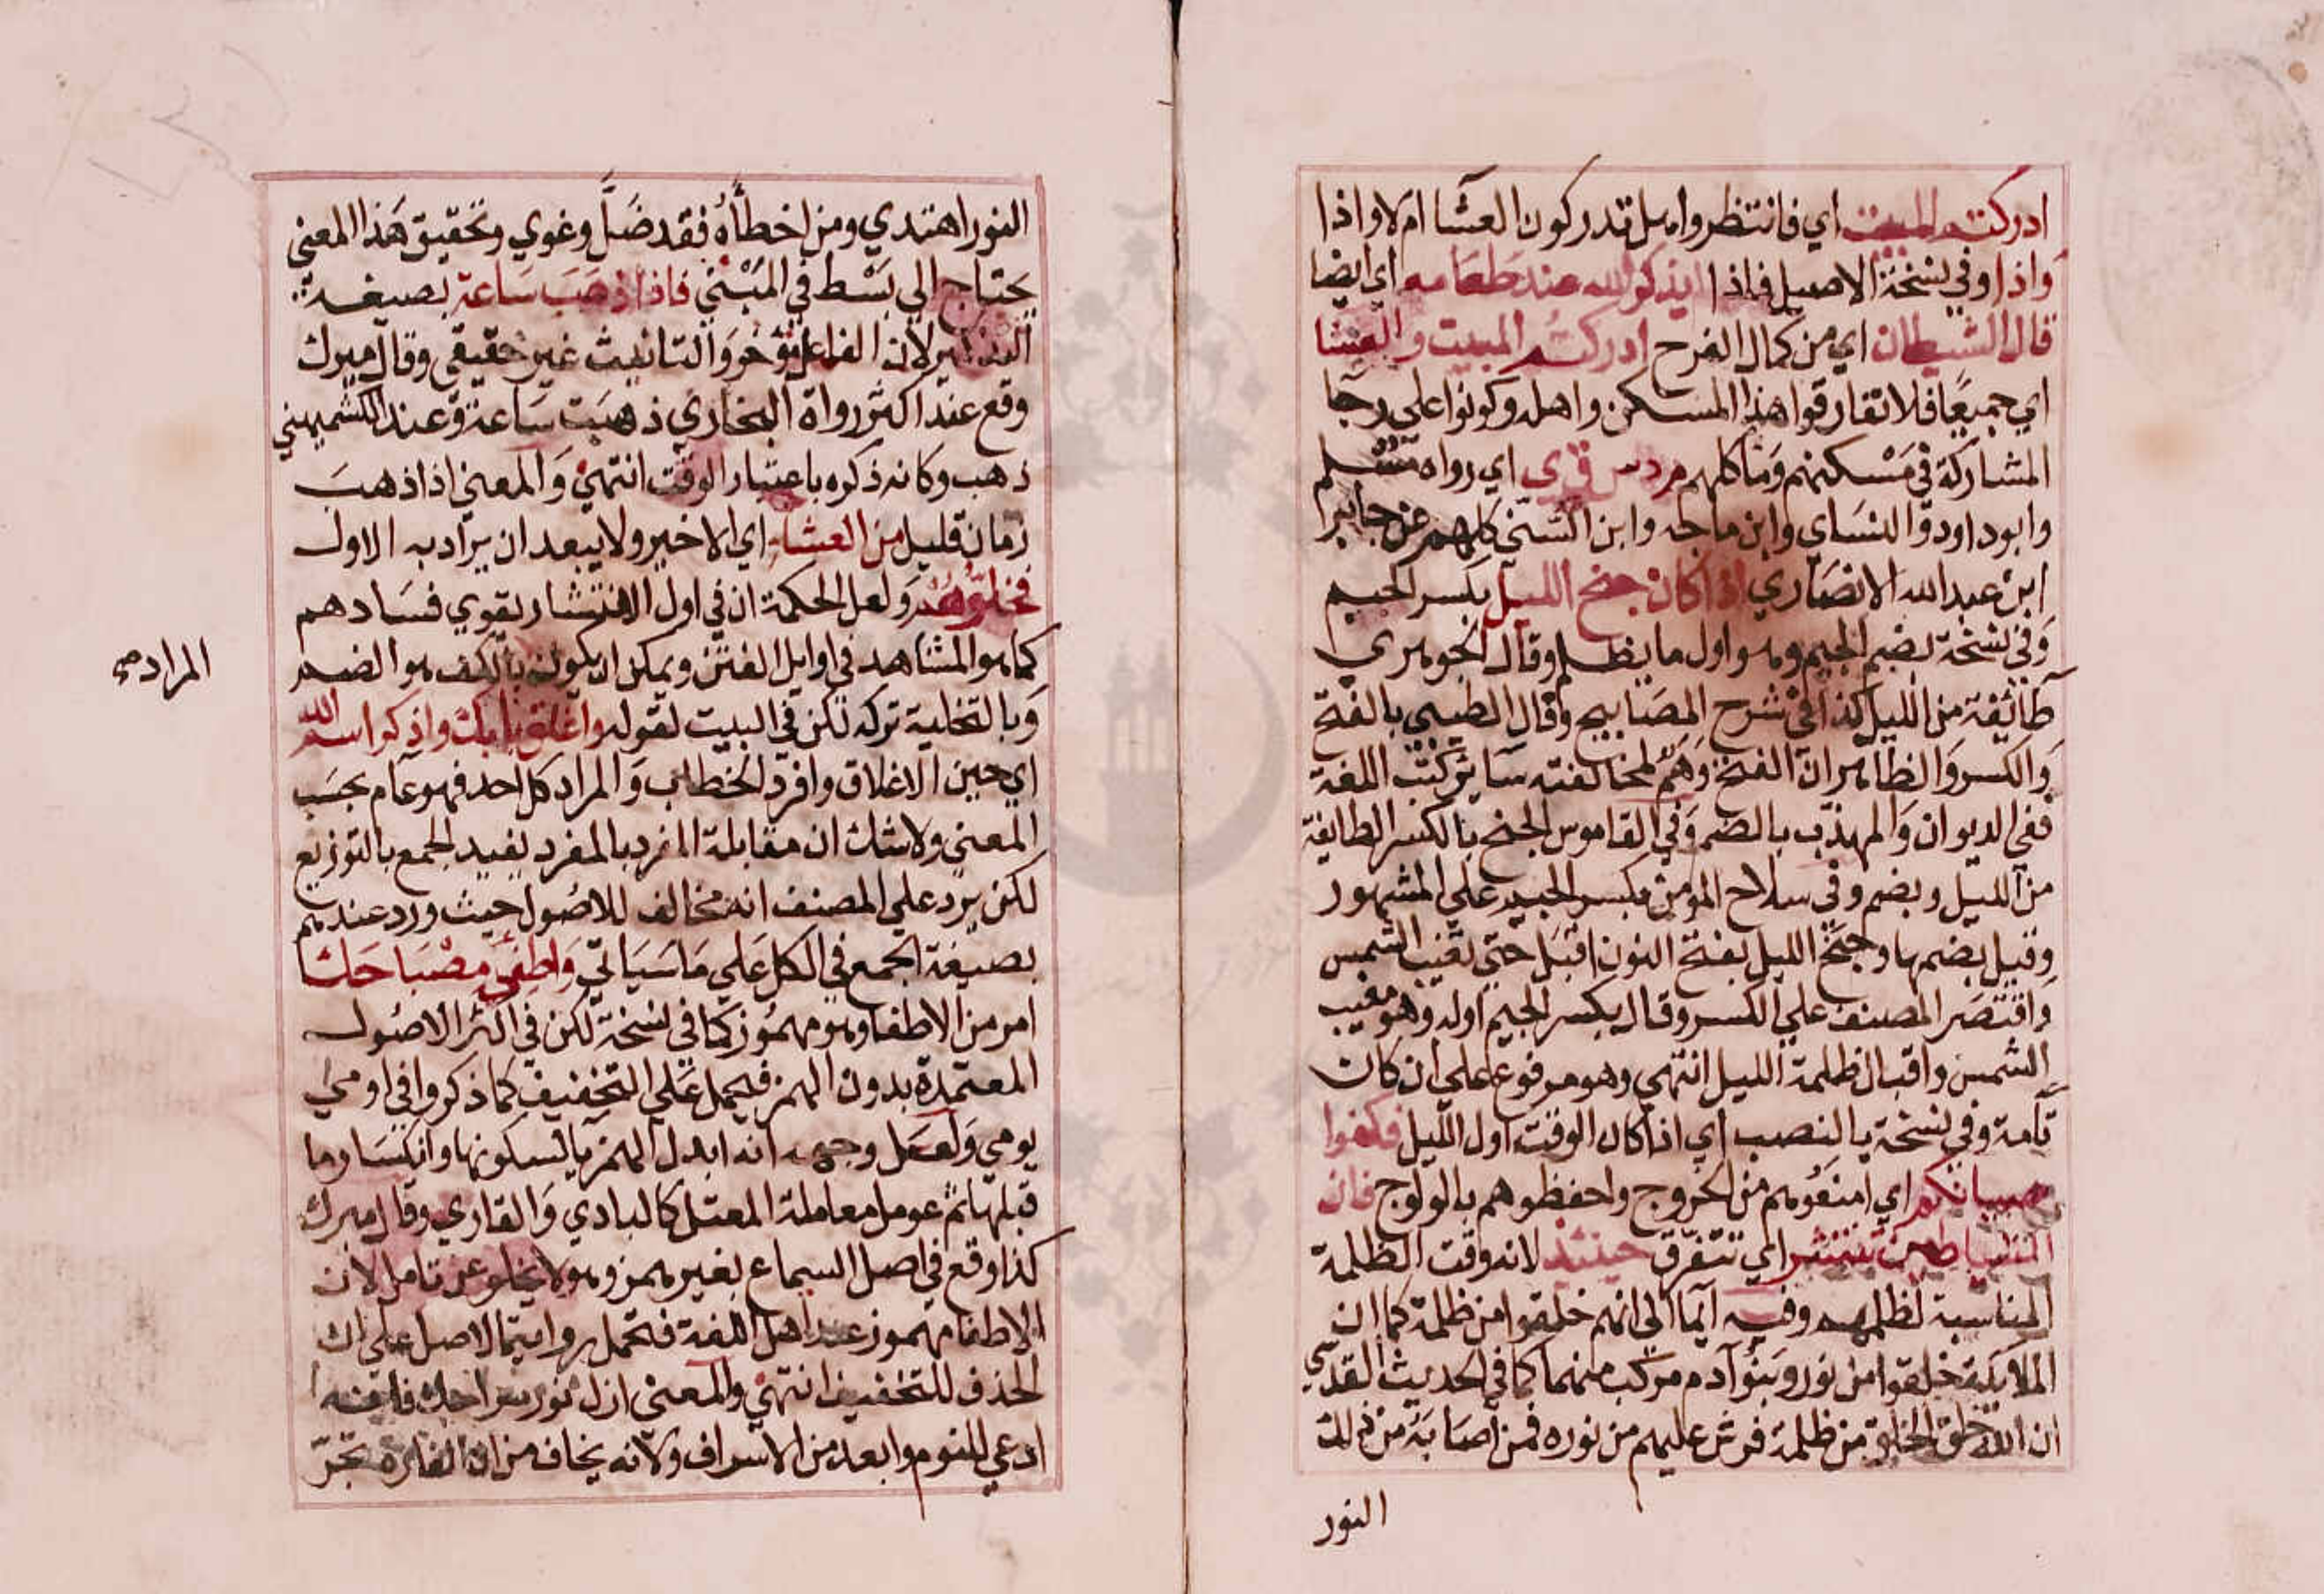 ادركتم المبيت اي فانتظروا هل تدركون العشا ام لا واذا
واذا وفي نسخة الاصيل فاذا لم يذكر الله عند طعامه اي ايضا
قال الشيطان اي من كمال الفرح ادركتم المبيت والعشا
اي جميعًا فلا تفارقوا هذا المسكن واهله وكونوا على رجا
المشاركة في مَسْكنهم ومَاكلهم م د س ق ي اي رواه مسلم
وابوداود والنسَاي وابن ماجه وابن السّني كلهم عن جابر
ابن عبد الله الانصَاري اذا كان جنح الليل بكسر الجيم
وَفي نسخة بضم الجيم وهو اول ما يظلم وقال الجوهري
طائفة من الليل كذا في شرح المصَابيح وقال الطيبي بالفتح
وَالكسر وَالظاهر ان الفتح وَهَمٌ لمخالفته سَاير كتب اللغة
ففي الديوان وَالمهذب بالضم وَفي القاموس الجنح بالكسر الطايفة
من الليل وبضم وفي سلاح المؤمن بكسر الجيم على المشهور
وقيل بضمها وجنَح الليل بفتح النون اقبَل حتى تغيب الشمس
وَاقتصَر المصنف علي الكسر وقال بكسر الجيم اوله وهو مغيب
الشمس واقبال ظلمة الليل انتهي وهو مرفوع علي ان كان
تامة وفي نسخة بالنصب اي اذا كان الوقت اول الليل فكفوا
صبيانكم اي امنعُوهم من الخروج واحفظوهم بالولوج فان
الشياطين تنتشر اي تتفرق حينئذ لانه وقت الظلمة
المناسبة لظلمهم وفيه ايما الي انهم خلقوا من ظلمة كما ان
الملايكة خلقوا من نور وبَنو آدم مركب منهما كما في الحديث القدسي
ان الله خلق الخلق من ظلمة فرش عليهم من نوره فمن اصَابَه من ذلك
النور
النور اهتدي ومن اخطأهُ فقد ضَلَّ وغوي وتحقيق هَذا المعني
يحتاج الي بَسْط في المَبْني فاذا ذهَبَ سَاعة بصيغة
التذكير لان الفاعل مؤخر وَالتانيث غير حقيقي وقال ميرك
وقع عند اكثر رواة البخاري ذهبَت سَاعة وعند الكشميهني
ذهب وكانه ذكره باعتبار الوقت انتهي وَالمعني اذا ذهبَ
زمان قليل من العشاء اي الاخير ولا يبعد ان يراد به الاول
فخلّوهُم وَلعل الحكمة ان في اول الانتشار يقوي فسَادهم
كما هو المشاهد في اوايل الفتن ويمكن ان يكون بالكف هو الضم
المراد
وَبالتخلية تركه لكن في البيت لقوله واغلق بابك واذكر اسم الله
اي حين الاغلاق وافرد الخطاب وَالمراد كل احد فهو عام بحسَب
المعني ولا شك ان مقابلة المفرد بالمفرد يفيد الجمع بالتوزيع
لكن يرد علي المصنف انه مخالف للاصُول حيث ورد عندهم
بصيغة الجمع في الكل عَلي مَا سَيَاتي وَاطفئ مصْبَاحَك
امر من الاطفا وهو مهمُوز كما في نسخة لكن في اكثر الاصُول
المعتمدة بدون الهمز فيحمل عَلي التخفيف كما ذكروا في اومي
يومي وَلعَل وجهه انه ابدل الهمز يا لسكونها وانكسَار ما
قبلها ثم عومل معاملة المعتل كالبادي وَالقاري وقال ميرك
كذا وقع في اصل السماع بغير همز وهو لا يخلو عن تامل لان
الاطفا مهموز عند اهل اللغة فتحمل رواية الاصل علي ان
الحذف للتخفيف انتهي والمعني ازل نور سراجك فانه
ادعي للنوم وابعد من الاسراف ولانه يخاف من ان الفارة تجرّ